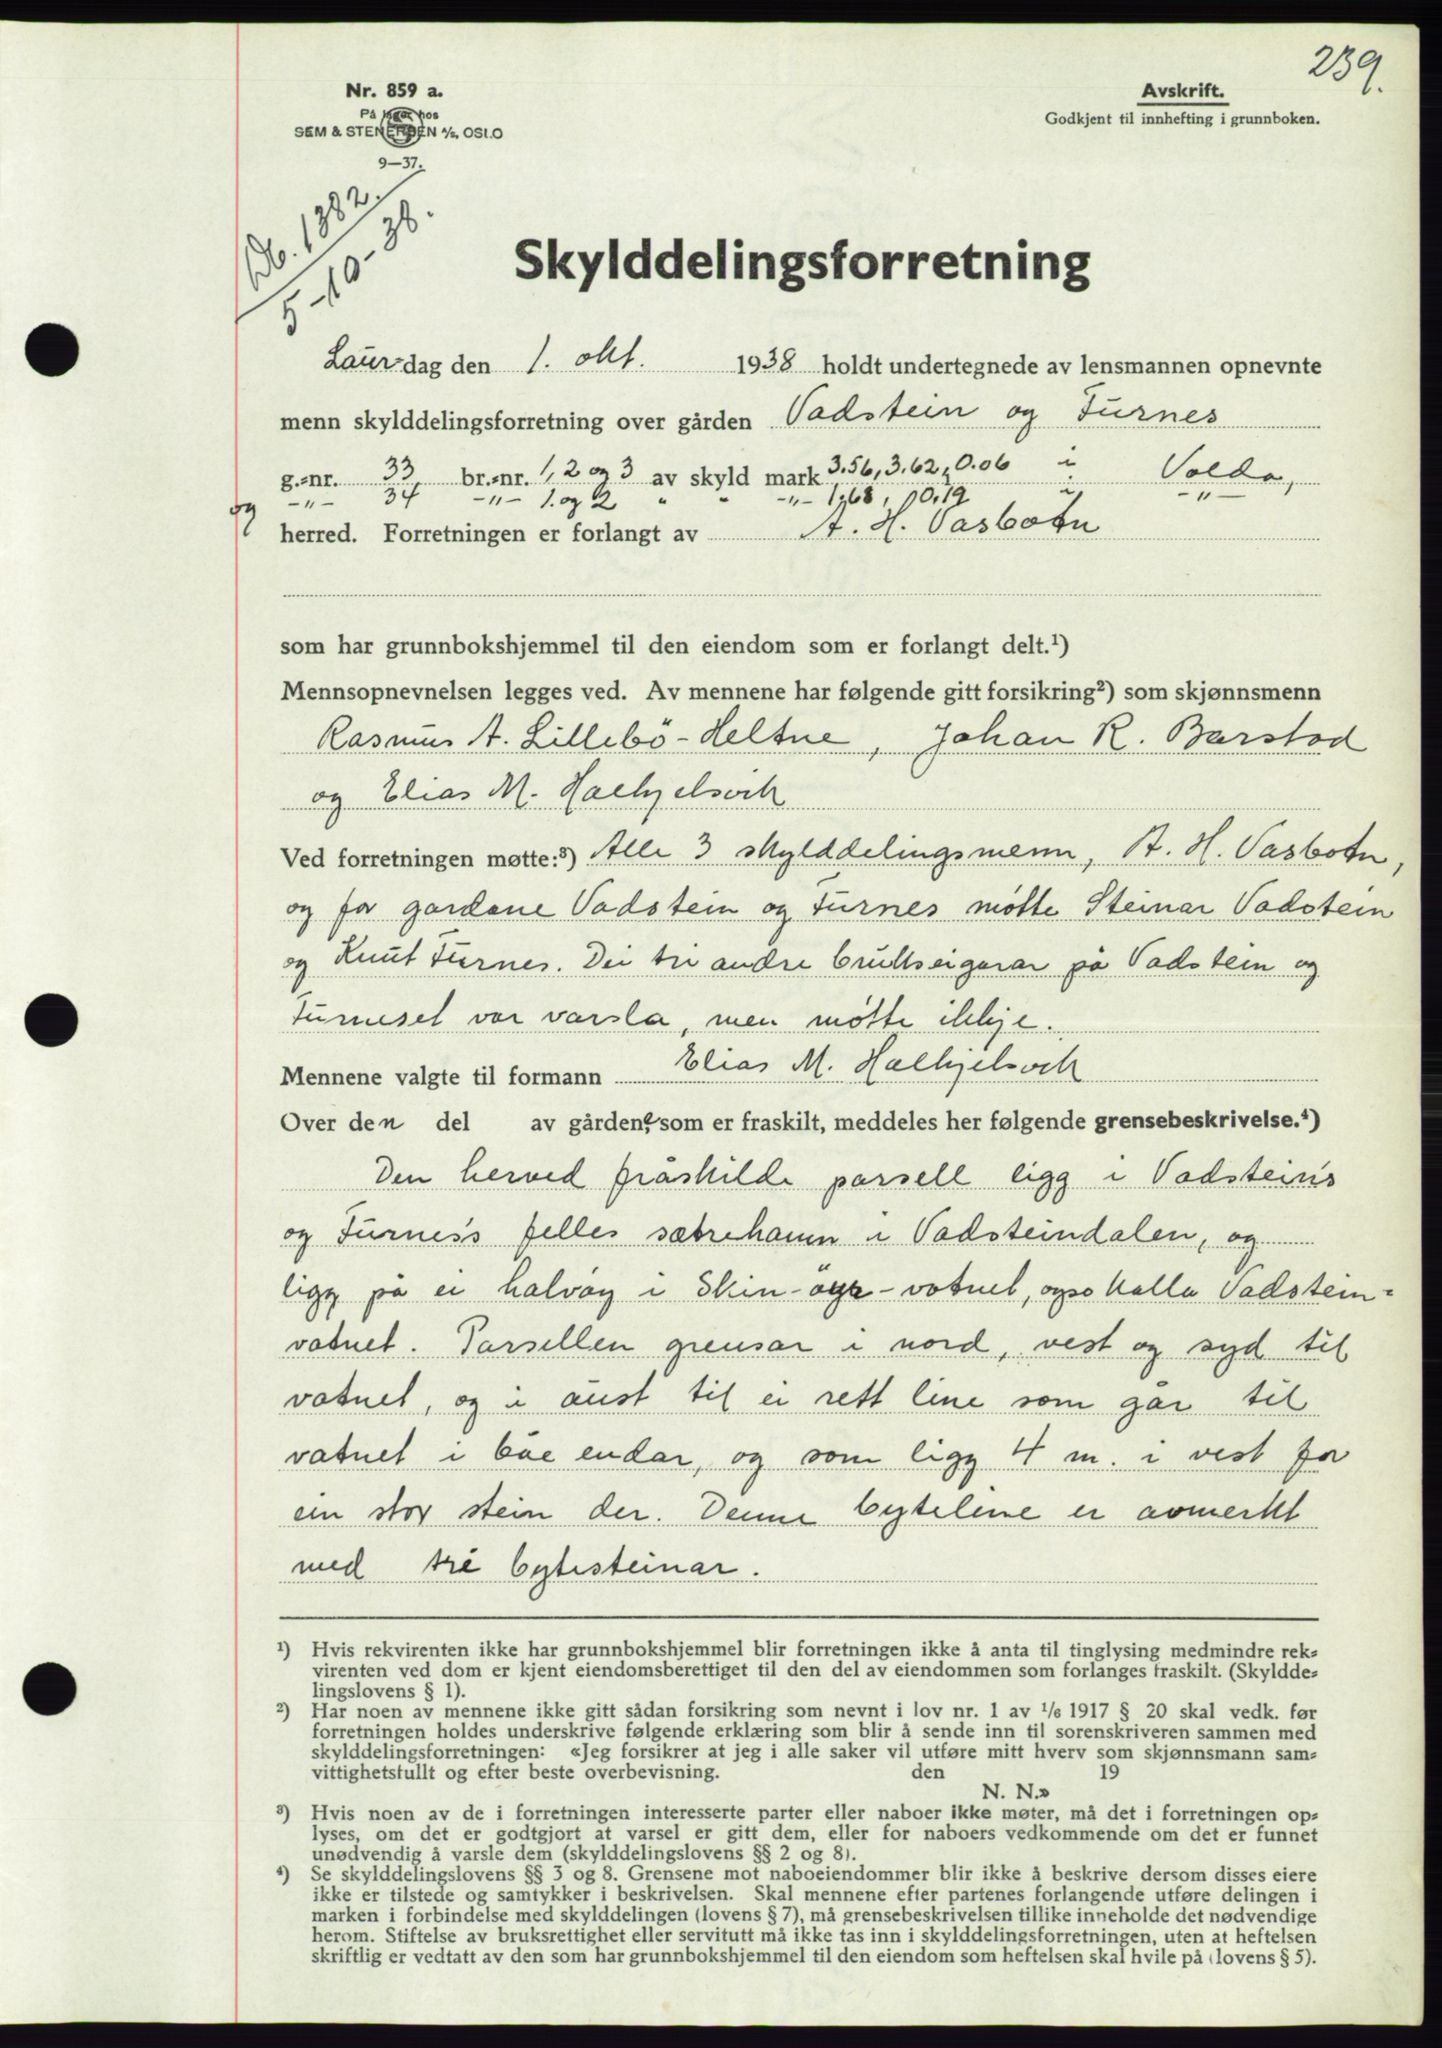 239.
Nr. 859 a.
På lager hos
SEM & STENERSEN A/S, OSLO
9—37.
Avskrift.
Godkjent til innhefting i grunnboken.
Db. 1382.
5-10-38.
Skylddelingsforretning
Laurdag den 1. okt. 1938 holdt undertegnede av lensmannen opnevnte
menn skylddelingsforretning over gården Vadstein og Furnes
g.-nr. 33 br.-nr. 1, 2 og 3 av skyld mark 3.56, 3.62, 0.06 i Volda,
og -"- 34 -"- 1. og 2 " " -"- 1.68, 0.19 i -"-
herred. Forretningen er forlangt av A. H. Vasbotn
som har grunnbokshjemmel til den eiendom som er forlangt delt.¹)
Mennsopnevnelsen legges ved. Av mennene har følgende gitt forsikring²) som skjønnsmenn
Rasmus A. Lillebö-Heltne, Johan R. Barstad
og Elias M. Halkjelsvik
Ved forretningen møtte:³) Alle 3 skylddelingsmenn, A. H. Vasbotn,
og for gardane Vadstein og Furnes møtte Steinar Vadstein
og Knut Furnes. Dei tri andre brukseigarar på Vadstein og
Furneset var varsla, men møtte ikkje.
Mennene valgte til formann Elias M. Halkjelsvik
Over den del av gårdene som er fraskilt, meddeles her følgende grensebeskrivelse.⁴)
Den herved fråskilde parsell ligg i Vadstein's
og Furnes's felles sætrehamn i Vadsteindalen, og
ligg på ei halvøy i Skin-øyr-vatnet, også kalla Vadstein=
vatnet. Parsellen grensar i nord, vest og syd til
vatnet, og i aust til ei rett line som går til
vatnet i båe endar, og som ligg 4 m. i vest for
ein stor stein der. Denne byteline er avmerkt
med tri bytesteinar.
¹) Hvis rekvirenten ikke har grunnbokshjemmel blir forretningen ikke å anta til tinglysing medmindre rek-
virenten ved dom er kjent eiendomsberettiget til den del av eiendommen som forlanges fraskilt. (Skyldde-
lingslovens § 1).
²) Har noen av mennene ikke gitt sådan forsikring som nevnt i lov nr. 1 av 1/6 1917 § 20 skal vedk. før
forretningen holdes underskrive følgende erklæring som blir å sende inn til sorenskriveren sammen med
skylddelingsforretningen: «Jeg forsikrer at jeg i alle saker vil utføre mitt hverv som skjønnsmann sam-
vittighetsfullt og efter beste overbevisning. den 19
N. N.»
³) Hvis noen av de i forretningen interesserte parter eller naboer ikke møter, må det i forretningen op-
lyses, om det er godtgjort at varsel er gitt dem, eller for naboers vedkommende om det er funnet
unødvendig å varsle dem (skylddelingslovens §§ 2 og 8).
⁴) Se skylddelingslovens §§ 3 og 8. Grensene mot naboeiendommer blir ikke å beskrive dersom disses eiere
ikke er tilstede og samtykker i beskrivelsen. Skal mennene efter partenes forlangende utføre delingen i
marken i forbindelse med skylddelingen (lovens § 7), må grensebeskrivelsen tillike inneholde det nødvendige
herom. Stiftelse av bruksrettighet eller servitutt må ikke tas inn i skylddelingsforretningen, uten at heftelsen
skriftlig er vedtatt av den som har grunnbokshjemmel til den eiendom som heftelsen skal hvile på (lovens § 5).